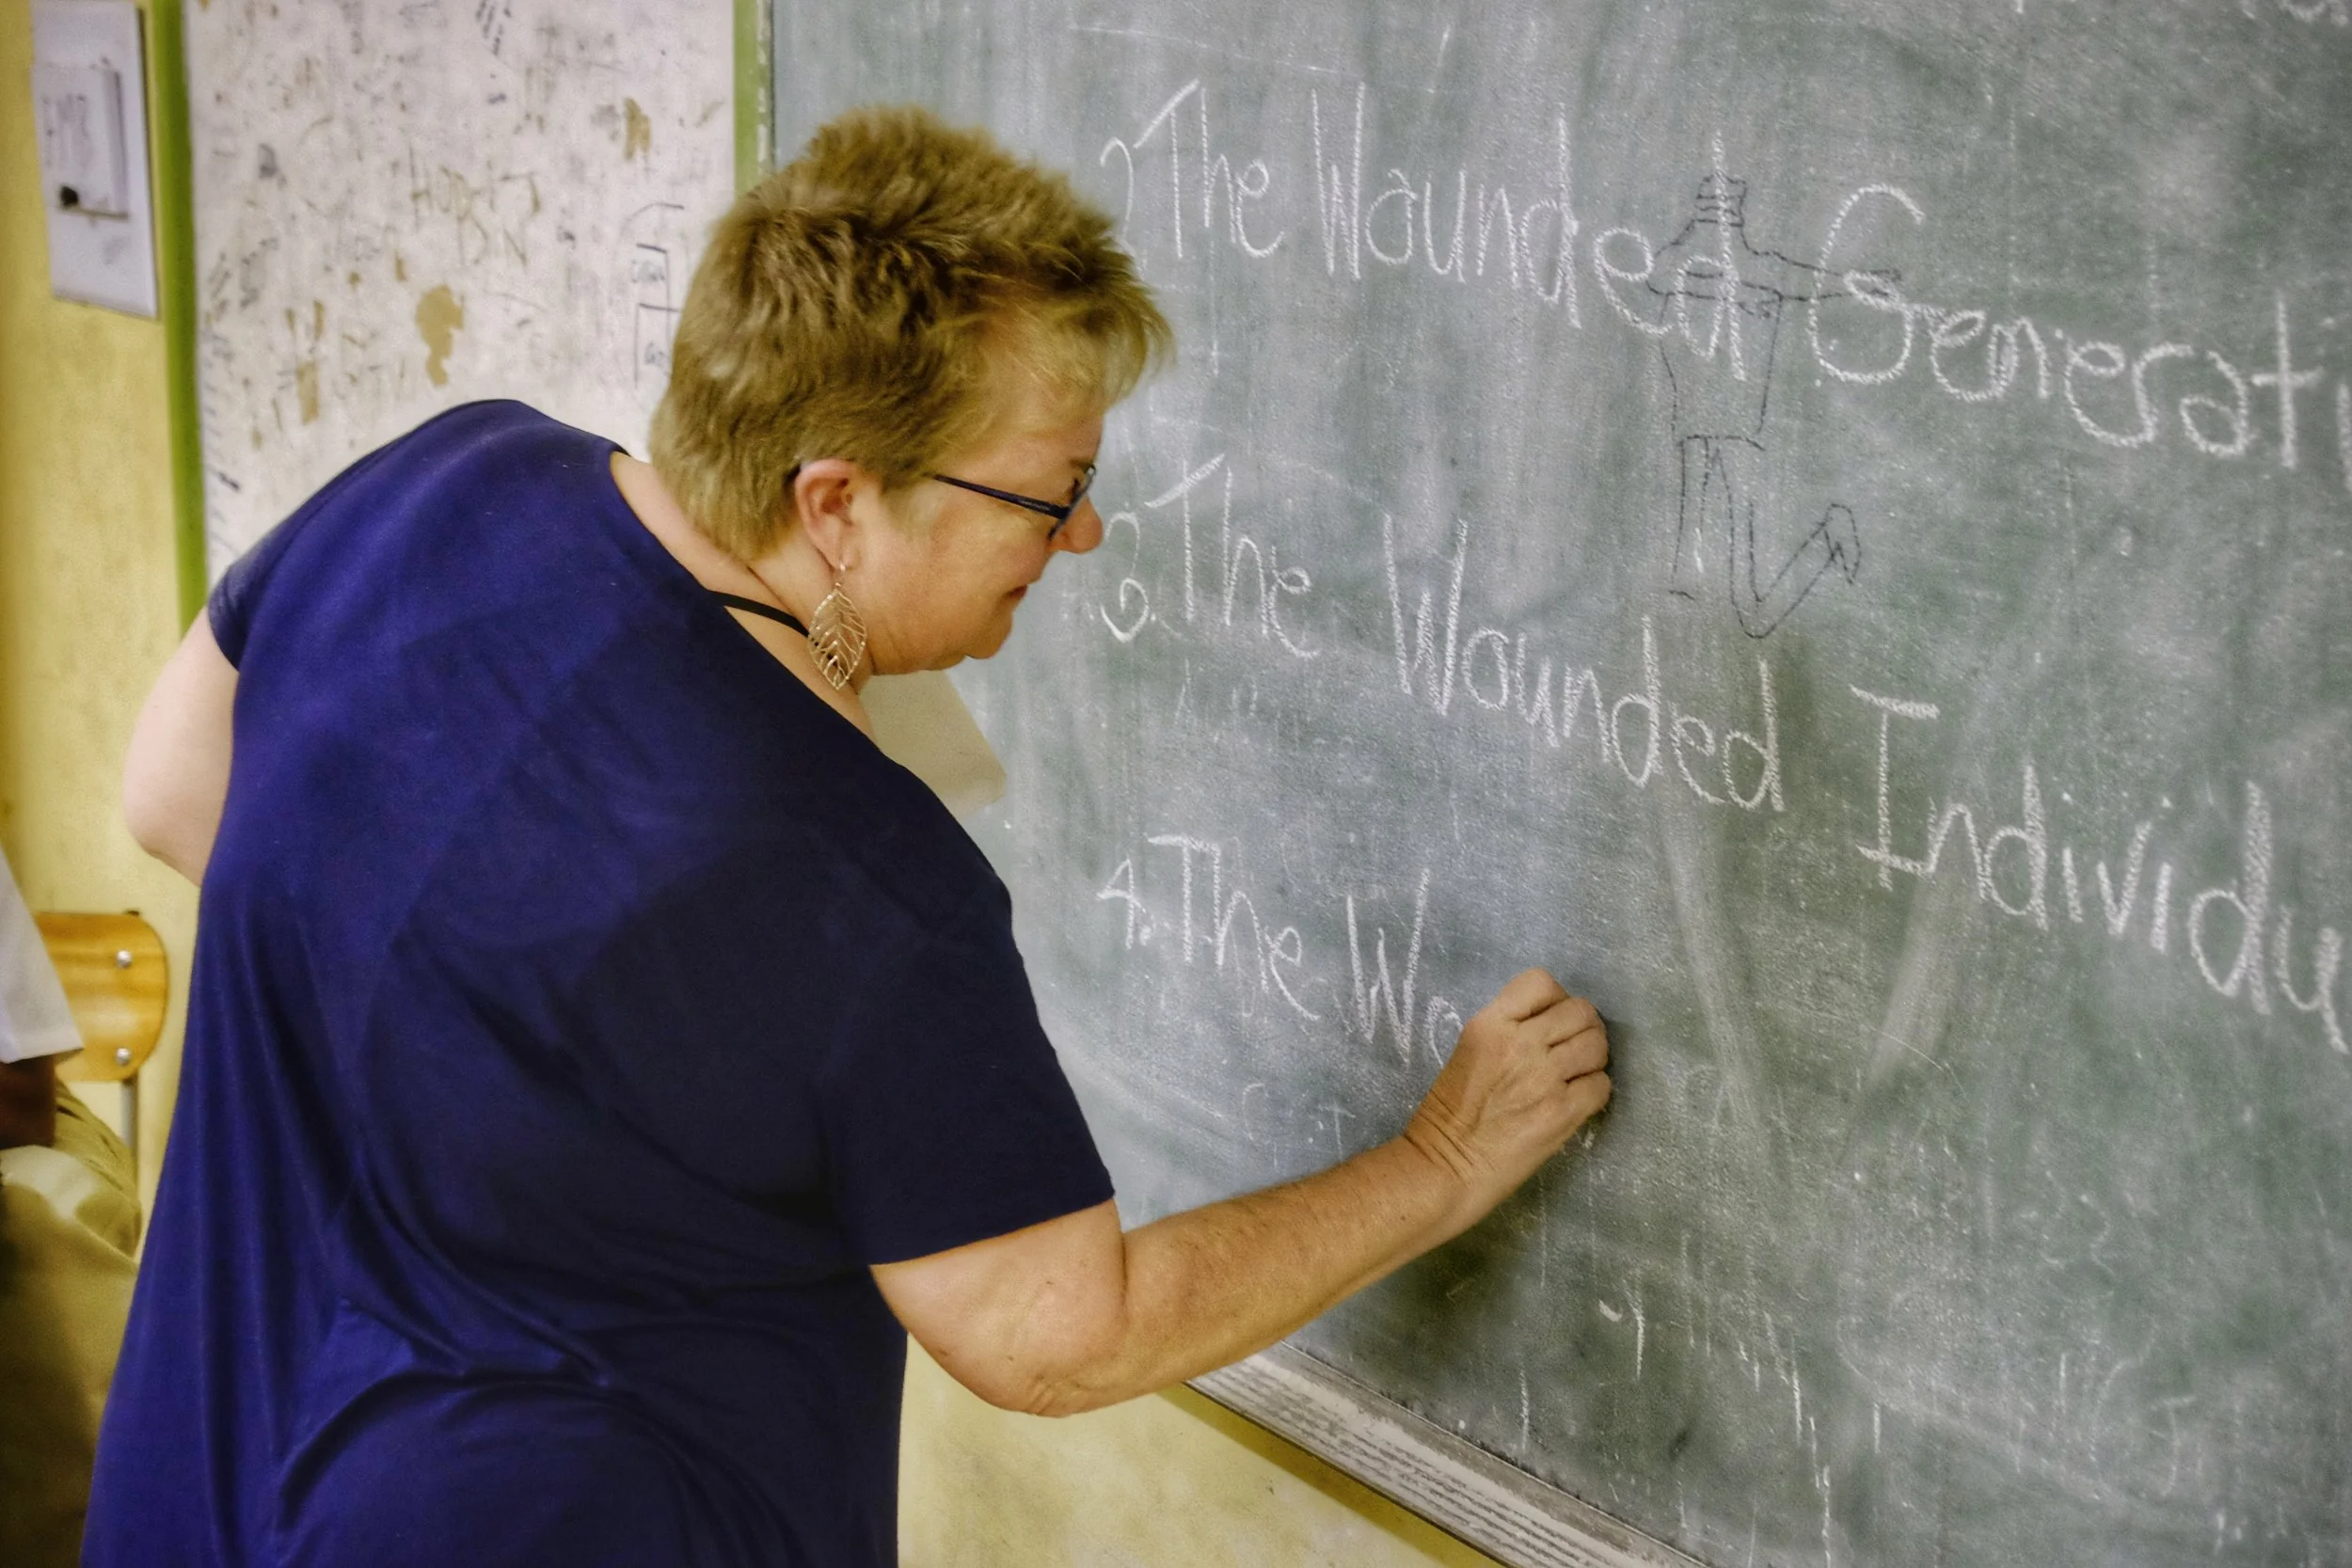 2 The Wounded Generati
3. The Wounded Individu
4. The Wo